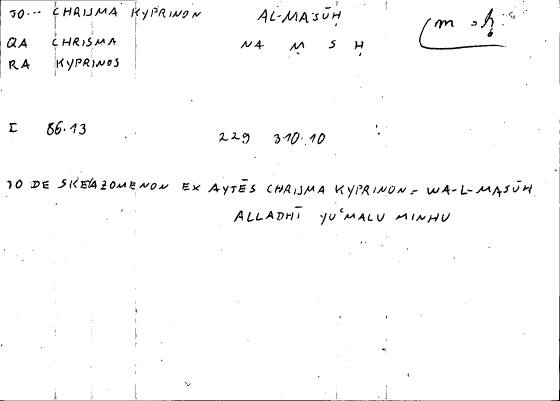 TO... CHRISMA KYPRINON AL-MASŪḤ
QA CHRISMA NA M S Ḥ
RA KYPRINOS
I 86.13 229 310.10
TO DE SKEAZOMENON EX AYTĒS CHRISMA KYPRINON = WA-L-MASŪḤ
ALLADHĪ YUʿMALU MINHU